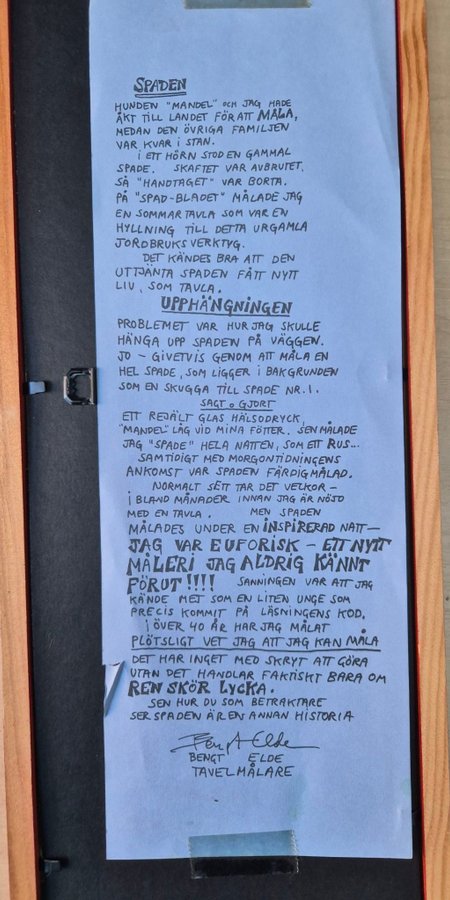 SPADEN
HUNDEN "MANDEL" OCH JAG HADE
ÅKT TILL LANDET FÖR ATT MÅLA,
MEDAN DEN ÖVRIGA FAMILJEN
VAR KVAR I STAN.
I ETT HÖRN STOD EN GAMMAL
SPADE. SKAFTET VAR AVBRUTET.
SÅ "HANDTAGET" VAR BORTA.
PÅ "SPAD-BLADET" MÅLADE JAG
EN SOMMAR TAVLA SOM VAR EN
HYLLNING TILL DETTA URGAMLA
JORDBRUKS VERKTYG.
DET KÄNDES BRA ATT DEN
UTTJÄNTA SPADEN FÅTT NYTT
LIV, SOM TAVLA.
UPPHÄNGNINGEN
PROBLEMET VAR HUR JAG SKULLE
HÄNGA UPP SPADEN PÅ VÄGGEN.
JO – GIVETVIS GENOM ATT MÅLA EN
HEL SPADE, SOM LIGGER I BAKGRUNDEN
SOM EN SKUGGA TILL SPADE NR. 1.
SAGT O GJORT
ETT REJÄLT GLAS HÄLSODRYCK,
"MANDEL" LÅG VID MINA FÖTTER. SEN MÅLADE
JAG "SPADE" HELA NATTEN, SOM ETT RUS...
SAMTIDIGT MED MORGONTIDNINGENS
ANKOMST VAR SPADEN FÄRDIGMÅLAD.
NORMALT SETT TAR DET VECKOR –
IBLAND MÅNADER INNAN JAG ÄR NÖJD
MED EN TAVLA. MEN SPADEN
MÅLADES UNDER EN INSPIRERAD NATT –
JAG VAR EUFORISK – ETT NYTT
MÅLERI JAG ALDRIG KÄNNT
FÖRUT !!!! SANNINGEN VAR ATT JAG
KÄNDE MET SOM EN LITEN UNGE SOM
PRECIS KOMMIT PÅ LÄSNINGENS KOD.
I ÖVER 40 ÅR HAR JAG MÅLAT
PLÖTSLIGT VET JAG ATT JAG KAN MÅLA
DET HAR INGET MED SKRYT ATT GÖRA
UTAN DET HANDLAR FAKTISKT BARA OM
REN SKÖR LYCKA.
SEN HUR DU SOM BETRAKTARE
SER SPADEN ÄR EN ANNAN HISTORIA
Bengt Elde
BENGT ELDE
TAVELMÅLARE